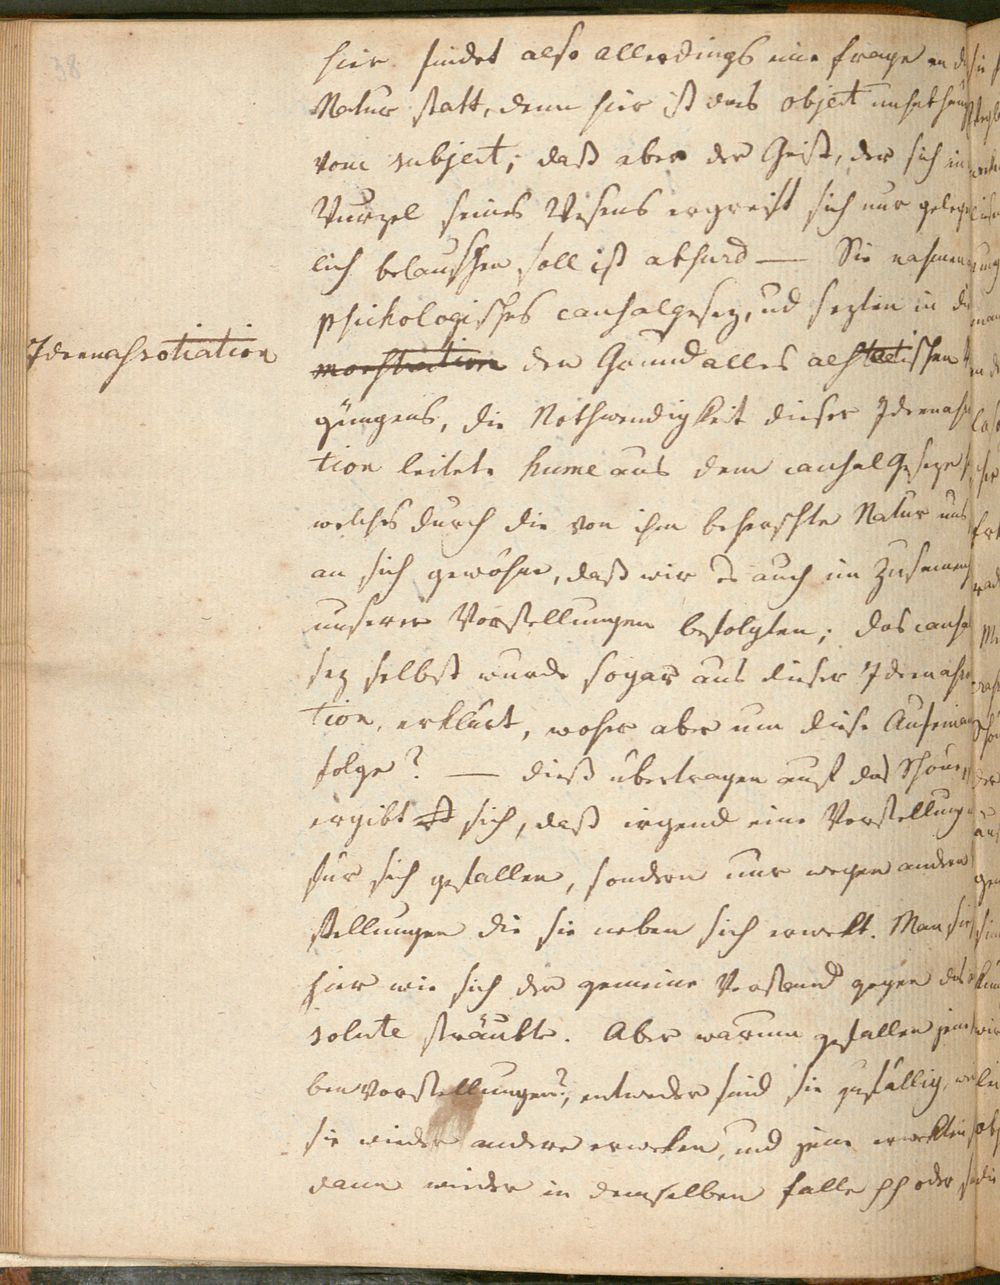 38
hier findet also allerdings eine frage an d
Natur statt, denn hier ist das object unabhäng
vom subject; daß aber der Geist, der sich in
Wurzel seines Wesens ergreift sich nur gelege
lich belauschen soll ist absurd — Sie nahmen
psichologisches causalgesez, und sezten in di
Ideenassotiation
monstration den Grund alles aesthetischen
gnügens, die Nothwendigkeit dieser Ideenasso
tion leitete hume aus dem causalgeseze
welches durch die von ihm beherschte Natur uns
an sich gewöhne, daß wir es auch im Zusamenh
unserer Vorstellungen befolgten; das causal
sez selbst wurde sogar aus dieser Ideenasso
tion, erklärt, woher aber um diese Aufeinan
folge? — dieß übertragen auf das Schöne,
ergibt sich, daß irgend eine Vorstellung
für sich gefallen, sondern nur wegen andern
stellungen die sie neben sich erwekt. Man sie
hier wie sich der gemeine Verstand gegen das
solute sträubte. Aber warum gefallen jene
ben Vorstellungen?, entweder sind sie zufällig, we
sie wieder andere erweken, und jene erwekten
dann wieder in demselben falle pp oder